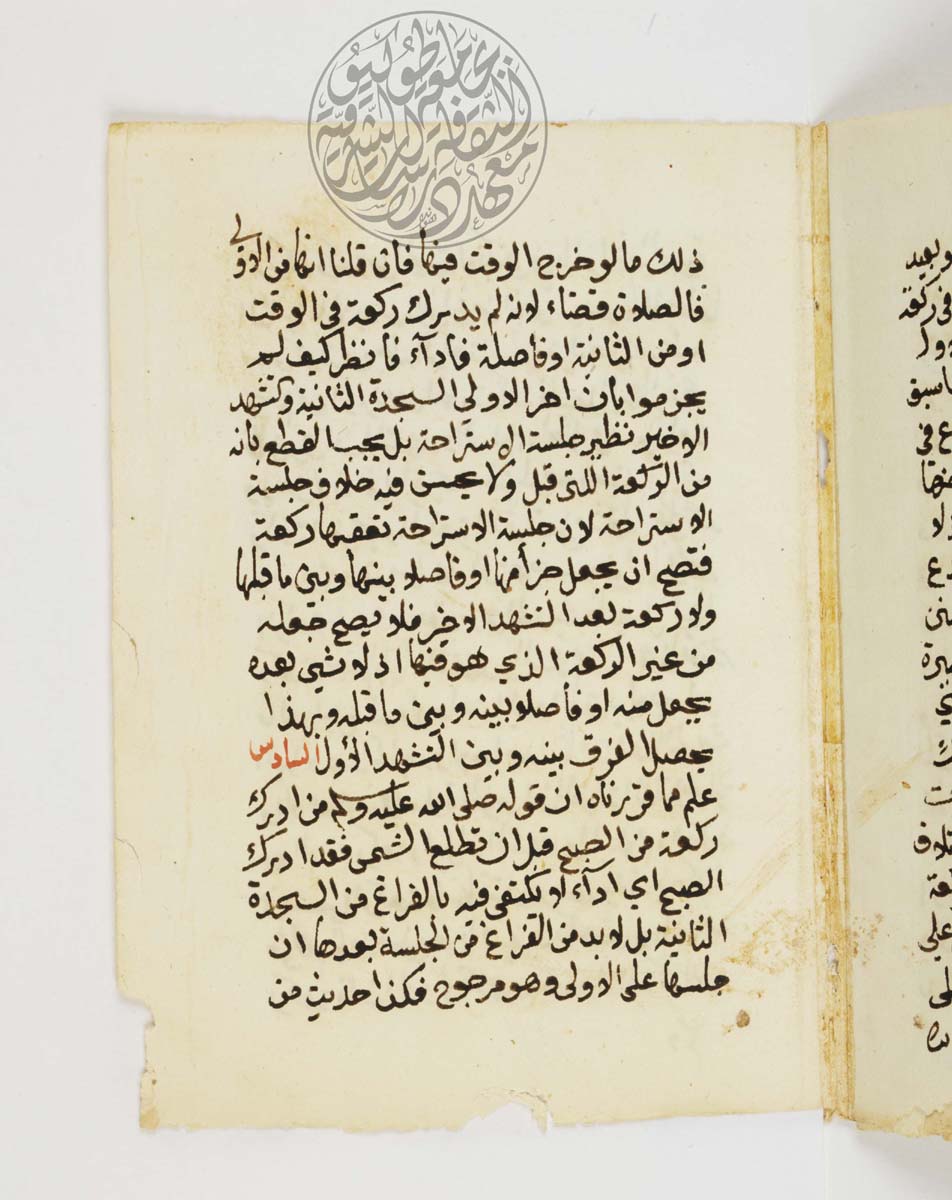 ذلك ما لو خرج الوقت فيها فان قلنا انها من الاولى
فالصلاة قضاء لانه لم يدرك ركعة في الوقت
او من الثانية او فاصلة فادآء فانظر كيف لم
يجزموا بان اخر الاولى السجدة الثانية وتشهد
الاخير نظير جلسة الاستراحة بل يجب القطع بانه
من الركعة اللتى قبل ولا يحسن فيه خلاف جلسة
الاستراحة لان جلسة الاستراحة تعقبها ركعة
فتصح ان يجعل جزأ منها او فاصلا بينها وبين ما قبلها
ولا ركعة بعد التشهد الاخير فلا يصح جعله
من غير الركعة الذي هو فيها اذ لا شي بعده
يجعل منه او فاصلا بينه وبين ما قبله وبهذا
يحصل الفرق بينه وبين التشهد الأول السادس
علم مما قررناه ان قوله صلى الله عليه وسلم من ادرك
ركعة من الصبح قبل ان تطلع الشمس فقد ادرك
الصبح اي ادآء لا يكتفى فيه بالفراغ من السجدة
الثانية بل لا بد من الفراغ من الجلسة بعدها ان
جلسها على الاولى وهو مرجوح فكذا حديث من